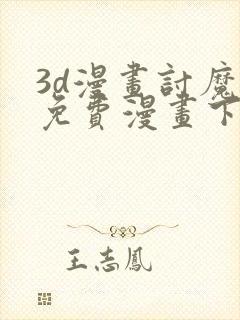 3d漫畫討魔
免費漫畫下
王志鳳